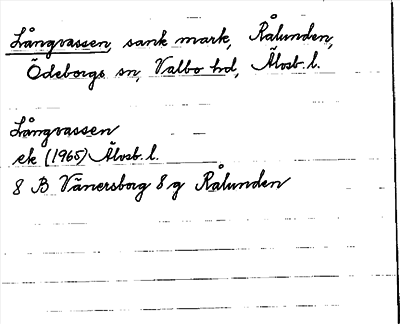 Långvassen, sank mark, Rålunden,
Ödeborgs sn, Valbo hd, Älvsb. l.
Långvassen
ek (1965) Älvsb. l.
8 B Vänersborg 8 g Rålunden